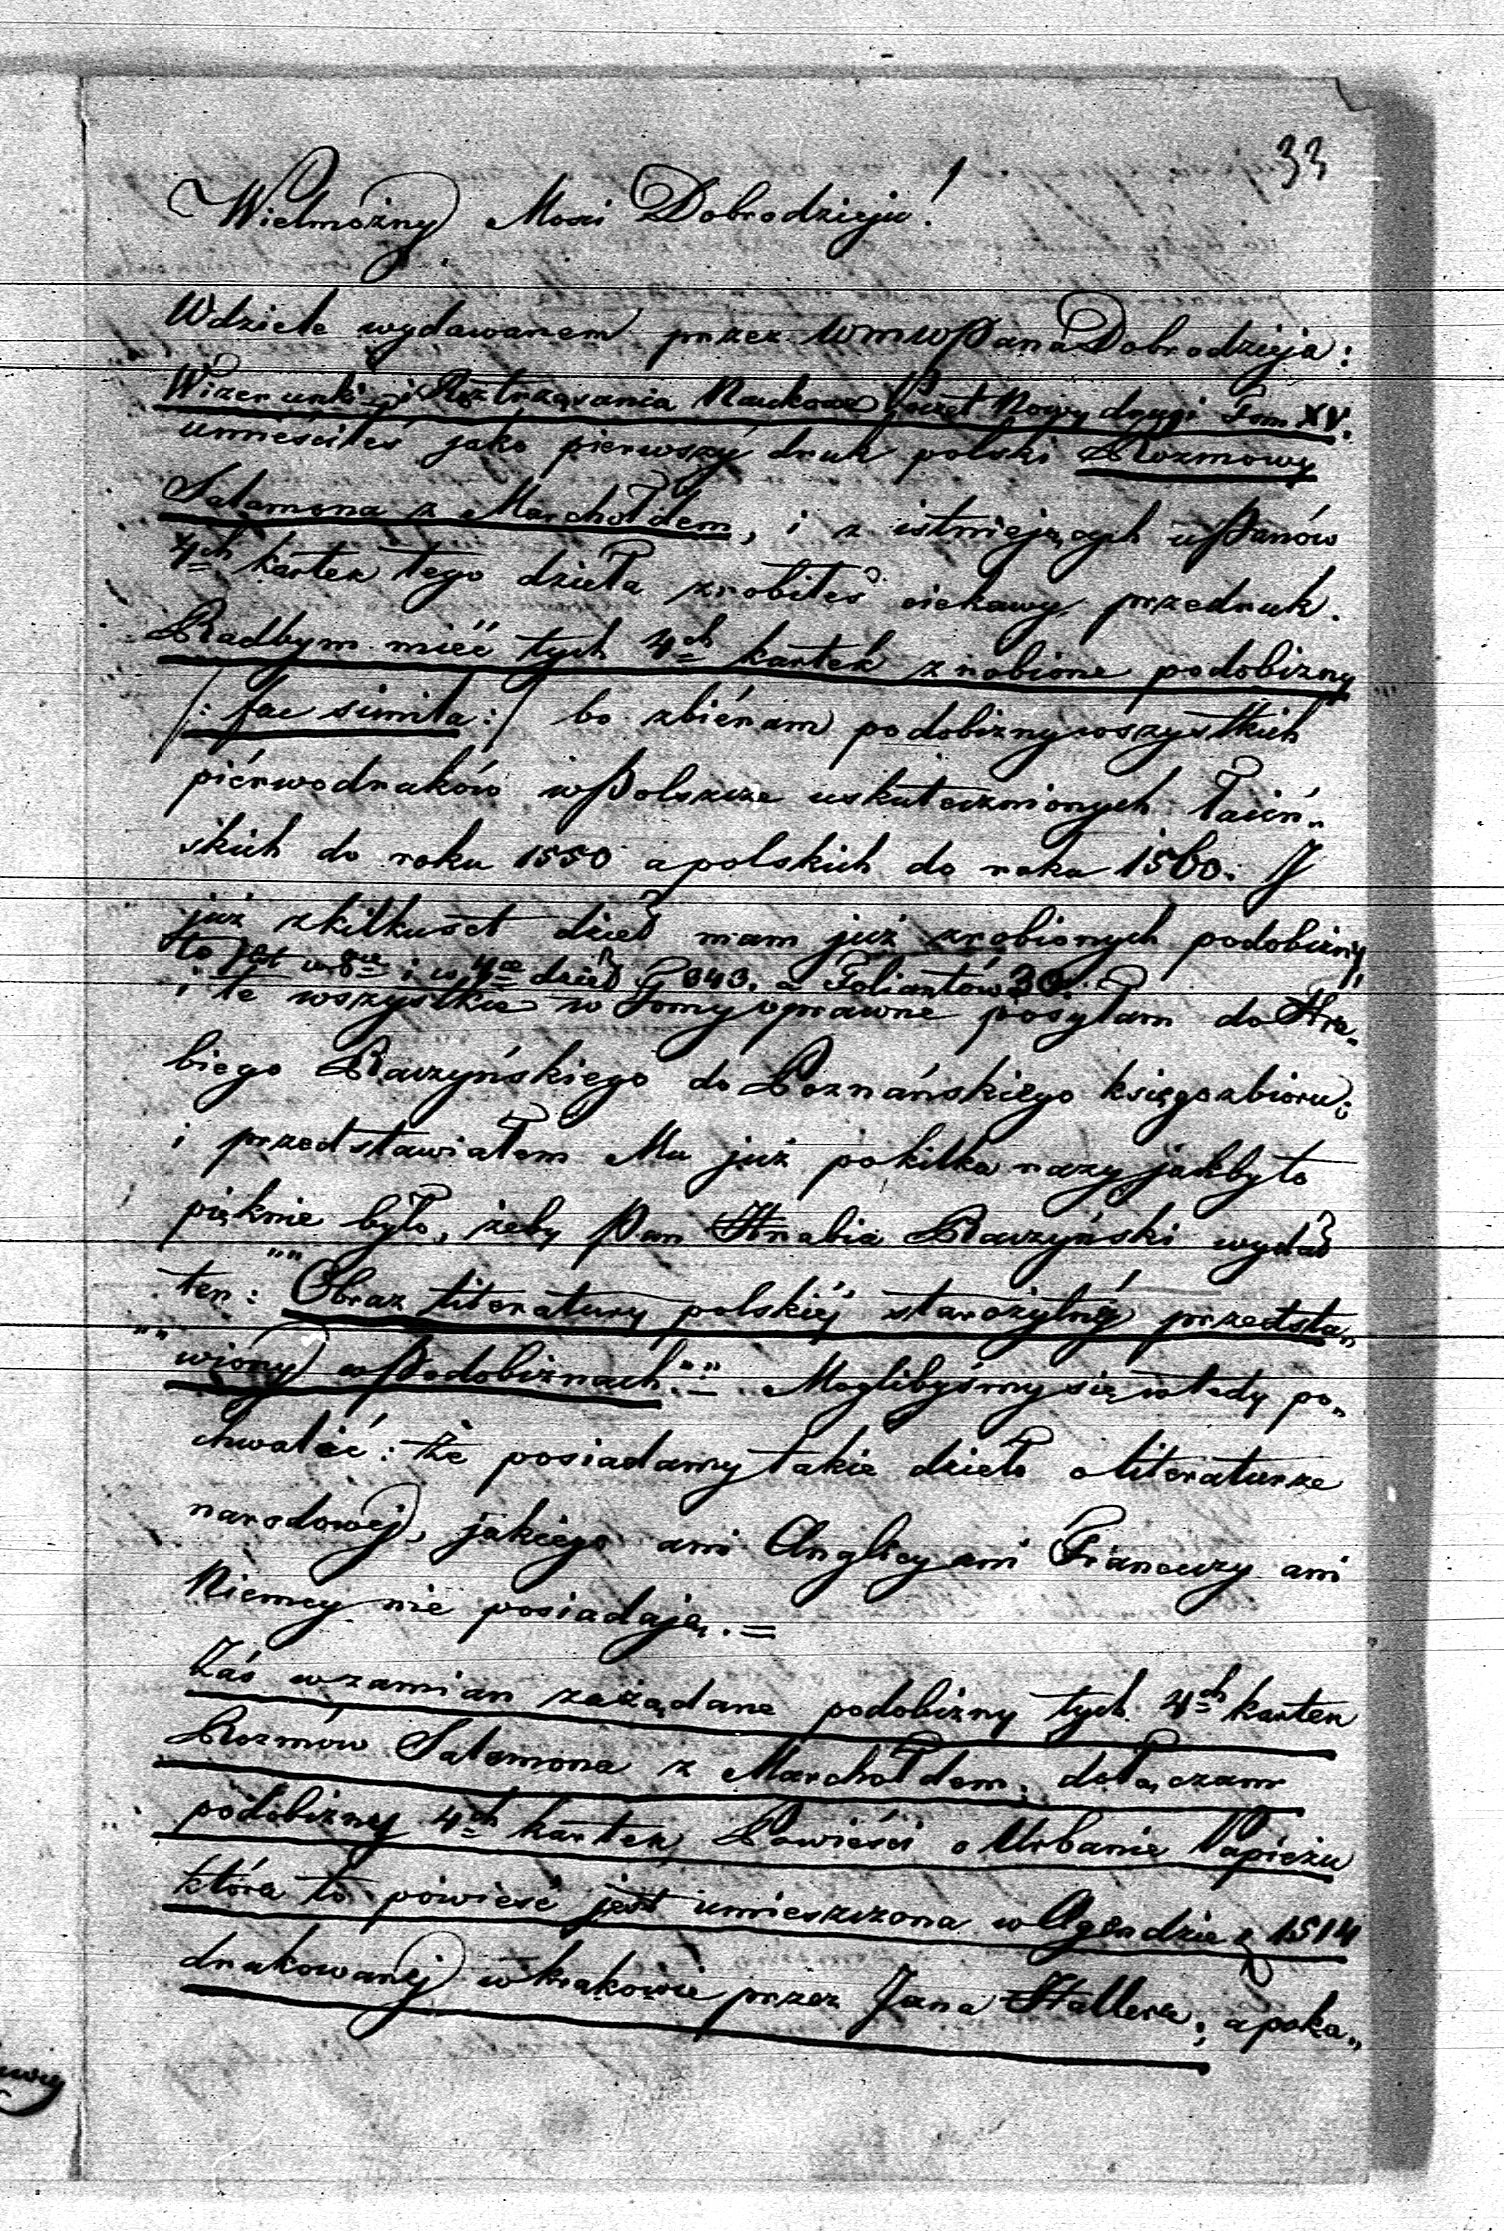 33
Wielmożny Mości Dobrodzieju!
W dziele wydawanem przez WMW Pana Dobrodzieja:
Wizerunki i Roztrząsania Naukowe Poczet Nowy drugi Tom XV.
umieściłeś jako pierwszy druk polski Rozmowy
Salamona z Marchołdem, i z istniejących u Panów
4ch kartek tego dzieła zrobiłeś ciekawy przedruk.
Radbym mieć tych 4ch kartek zrobione podobizny
/: fac simila :/ bo zbiéram podobizny wszystkich
piérwodruków w Polszcze uskutecznionych łaciń„
skich do roku 1550 a polskich do roku 1560. I
już z kilkuset dzieł mam już zrobionych podobizny,
to jest w 8ce i w 4ce dzieł 343. a Foliantów 30.
i te wszystkie w Tomy oprawne posyłam do Hra„
biego Raczyńskiego do Poznańskiego księgozbioru;
i przedstawiałem Mu już pokilka razy jakby to
pięknie było, żeby Pan Hrabia Raczyński wydał
ten: "" Obraz literatury polskiéj starożytnéj przedsta„
"" wiony w Podobiznach."" Moglibyśmy się wtedy po„
chwalić: że posiadamy takie dzieło o literaturze
narodowéj, jakiego ani Anglicy ani Francuzy ani
Niemcy nie posiadają. =
Zaś w zamian zażądane podobizny tych 4ch kartek
Rozmów Salomona z Marchołdem, dołączam
podobiznę 4ch kartek Powieści o Urbanie Papieżu
która to powieść jest umieszczona w Agendzie z 1514
drukowanéj w Krakowie przez Jana Hallera; a poka„